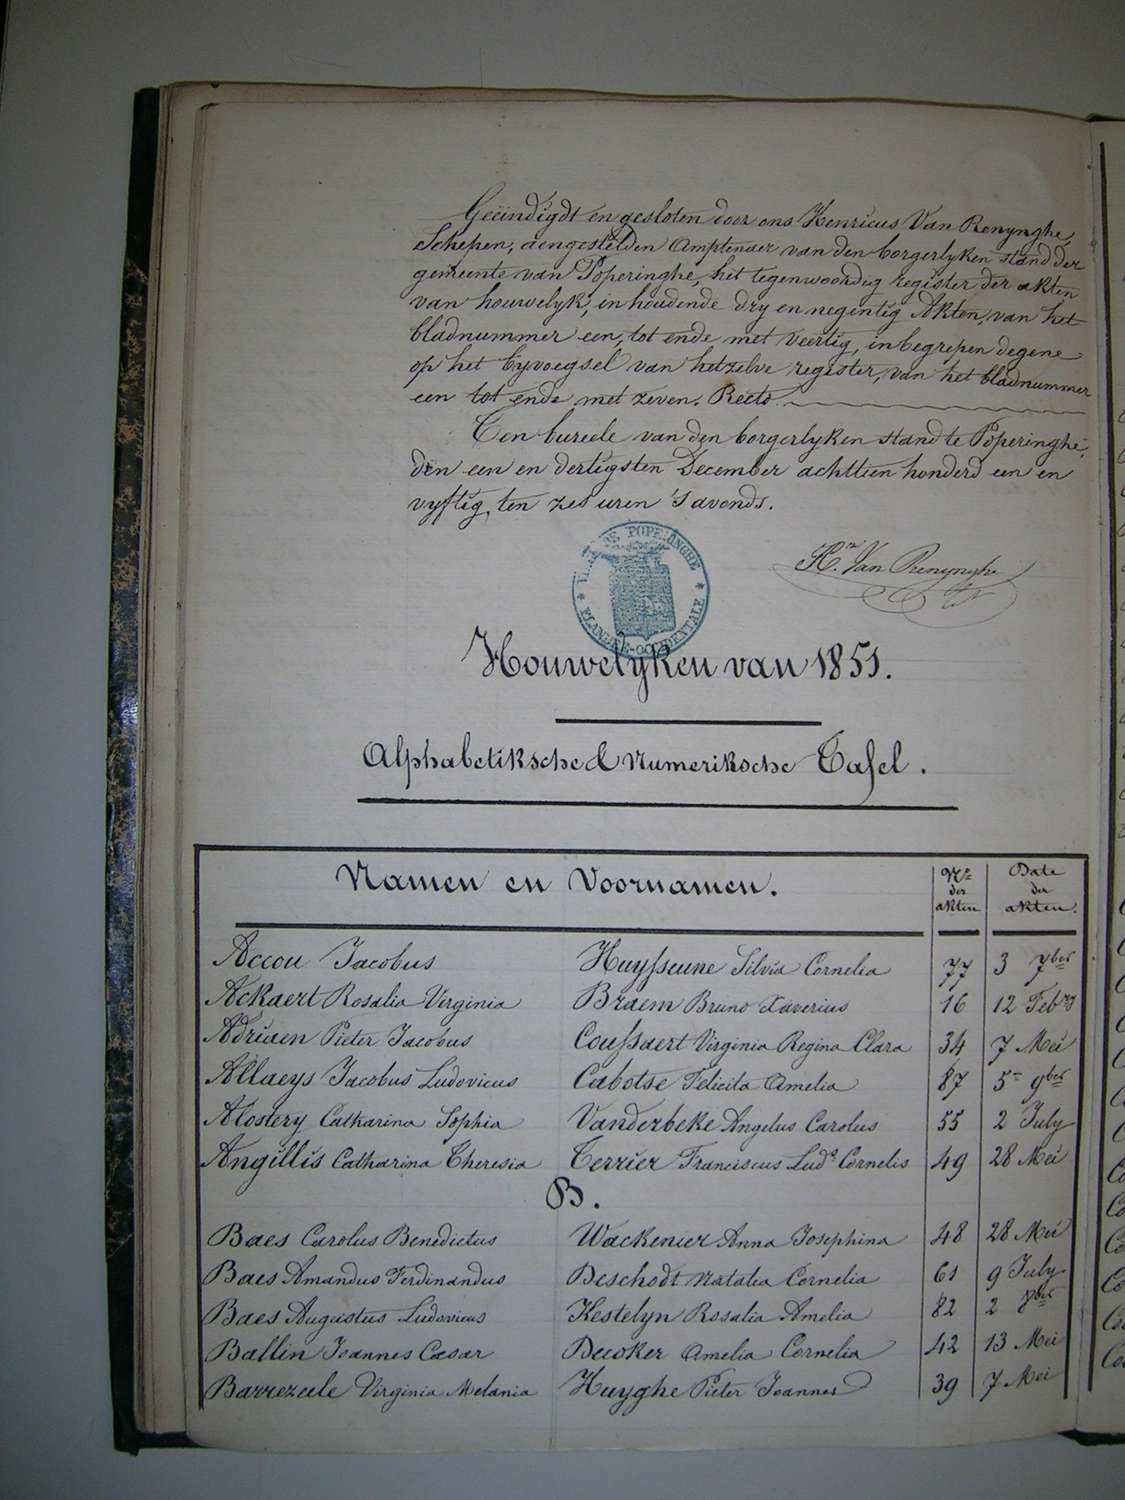 Geëindigdt en gesloten door ons Henricus Van Renynghe,
Schepen, aengestelden Amptenaer van den borgerlyken stand der
gemeente van Poperinghe, het tegenwoordig register der akten
van houwelyk, inhoudende dry en negentig Akten, van het
bladnummer een, tot ende met veertig, inbegrepen degene
op het byvoegsel van hetzelve register, van het bladnummer
een tot ende met zeven. Recto.
Ten bureele van den borgerlyken stand te Poperinghe,
den een en dertigsten December achttien honderd een en
vyftig, ten zes uren 's avonds.
POPERINGHE
FLANDRE-OCCIDENTALE
Hri Van Renynghe
Houwelyken van 1851.
Alphabetiksche & Numeriksche Tafel.
Namen en Voornamen. Nrs der akten Date der akten.
Accou Jacobus Huysseune Silvia Cornelia 77 3 7ber
Ackaert Rosalia Virginia Braem Bruno Xaverius 16 12 Febry
Adriaen Pieter Jacobus Coussaert Virginia Regina Clara 34 7 Mei
Allaeys Jacobus Ludovicus Cabotse Felicita Amelia 87 5 9ber
Alostery Catharina Sophia Vanderbeke Angelus Carolus 55 2 July
Angillis Catharina Theresia Terrier Franciscus Luds Cornelis 49 28 Mei
B.
Baes Carolus Benedictus Wackenier Anna Josephina 48 28 Mei
Baes Amandus Ferdinandus Deschodt Natalia Cornelia 61 9 July
Baes Augustus Ludovicus Kestelyn Rosalia Amelia 82 2 8ber
Ballin Joannes Cæsar Decoker Amelia Cornelia 42 13 Mei
Barrezeele Virginia Melania Huyghe Pieter Joannes 39 7 Mei